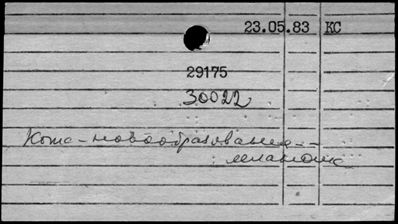 23.05.83 КС
29175
30022
Кожа-новообразования--
меланома